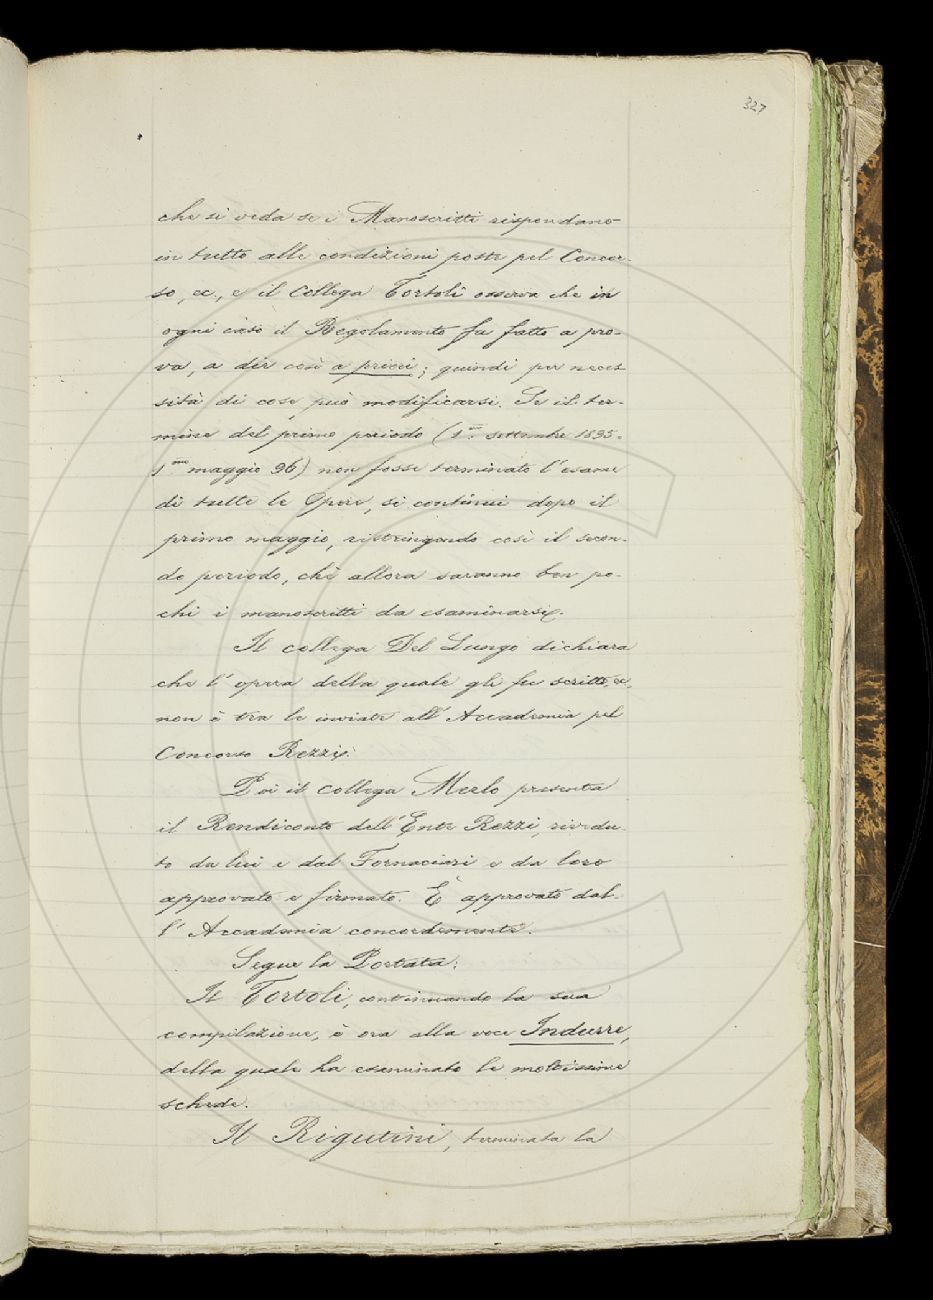 327
che si veda se i Manoscritti rispondano
in tutto alle condizioni poste pel Concor-
so, ec., e il Collega Tortoli osserva che in
ogni caso il Regolamento fu fatto a pro-
va, a dir così a priori; quindi per neces
sità di cose può modificarsi. Se il ter-
mine del primo periodo (1.mo settembre 1895-
1mo maggio 96) non fosse terminato l'esame
di tutte le Opere, si continui dopo il
primo maggio, ristringendo così il secon-
do periodo, chè allora saranno ben po-
chi i manoscritti da esaminarsi.
Il collega Del Lungo dichiara
che l'opera della quale gli fu scritto, ec,
non è tra le inviate all'Accademia pel
Concorso Rezzi.
Poi il collega Merlo presenta
il Rendiconto dell'Ente Rezzi, rivedu-
to da lui e dal Fornaciari e da loro
approvato e firmato. È approvato dal-
l'Accademia concordemente.
Segue la Portata:
Il Tortoli, continuando la sua
compilazione, è ora alla voce Indurre,
della quale ha esaminato le moltissime
schede.
Il Rigutini, terminata la